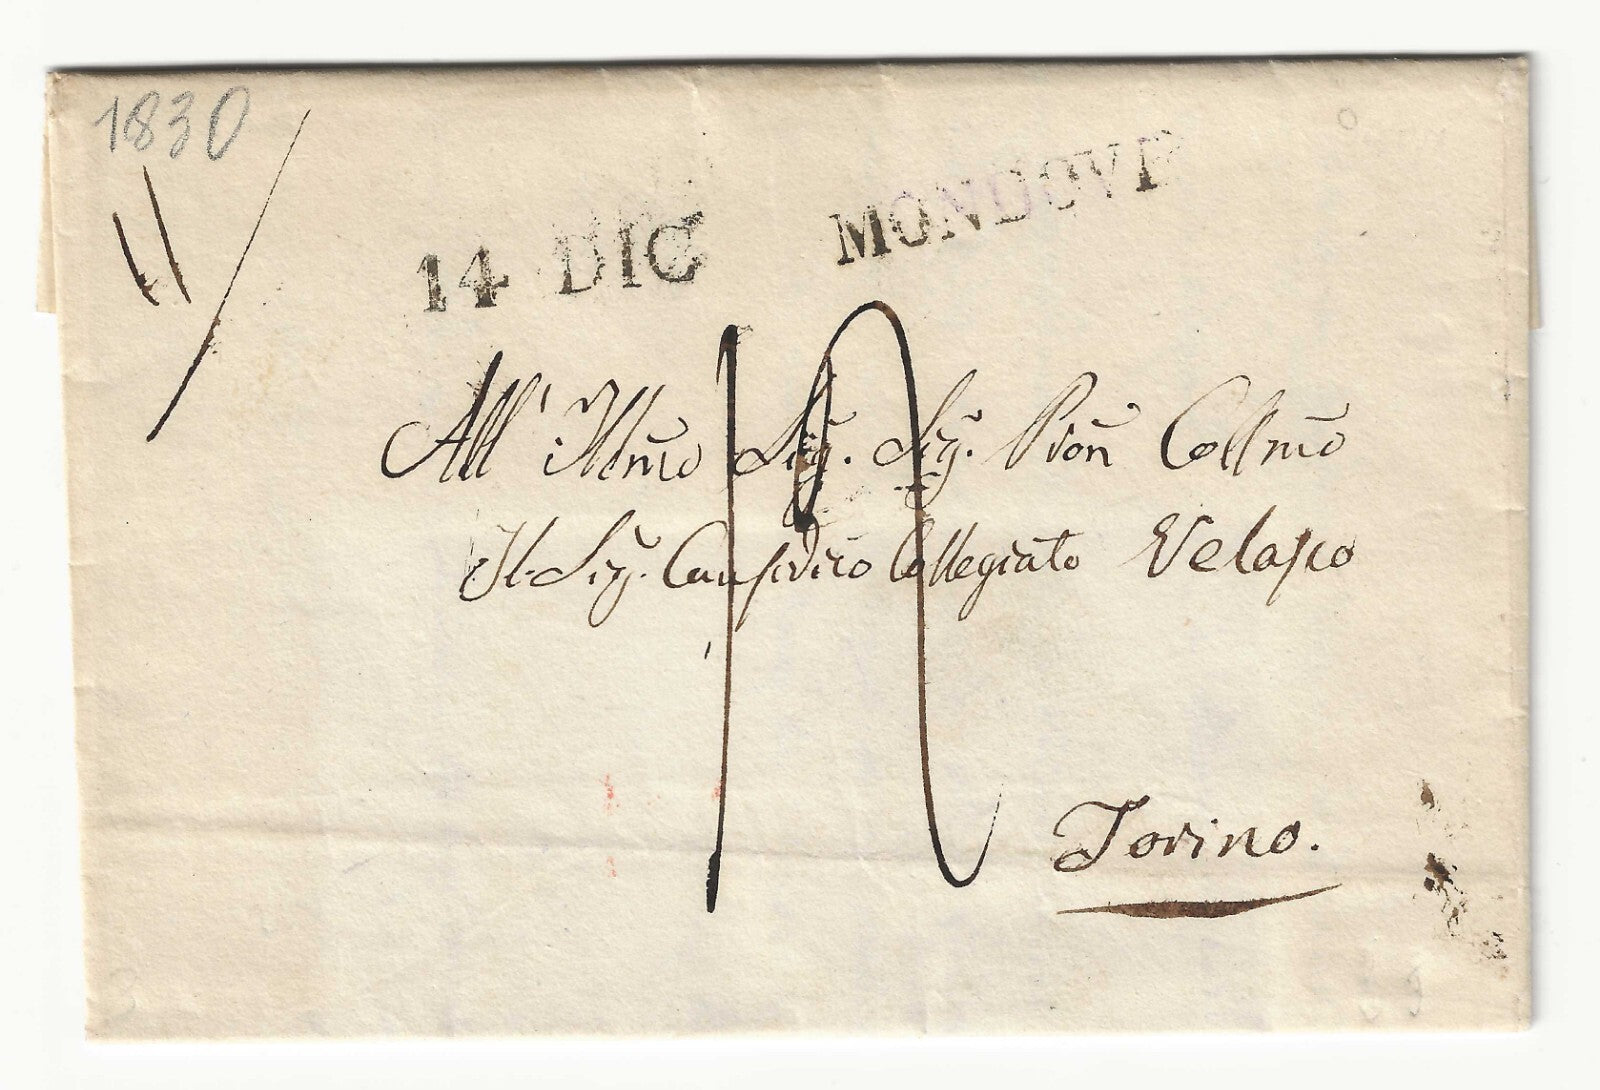 1830
14 DIC MONDOVI
All' Illmo Sig. Sig. Pron Collmo
Il Sig. Causidico Collegiato Velasco
Torino.